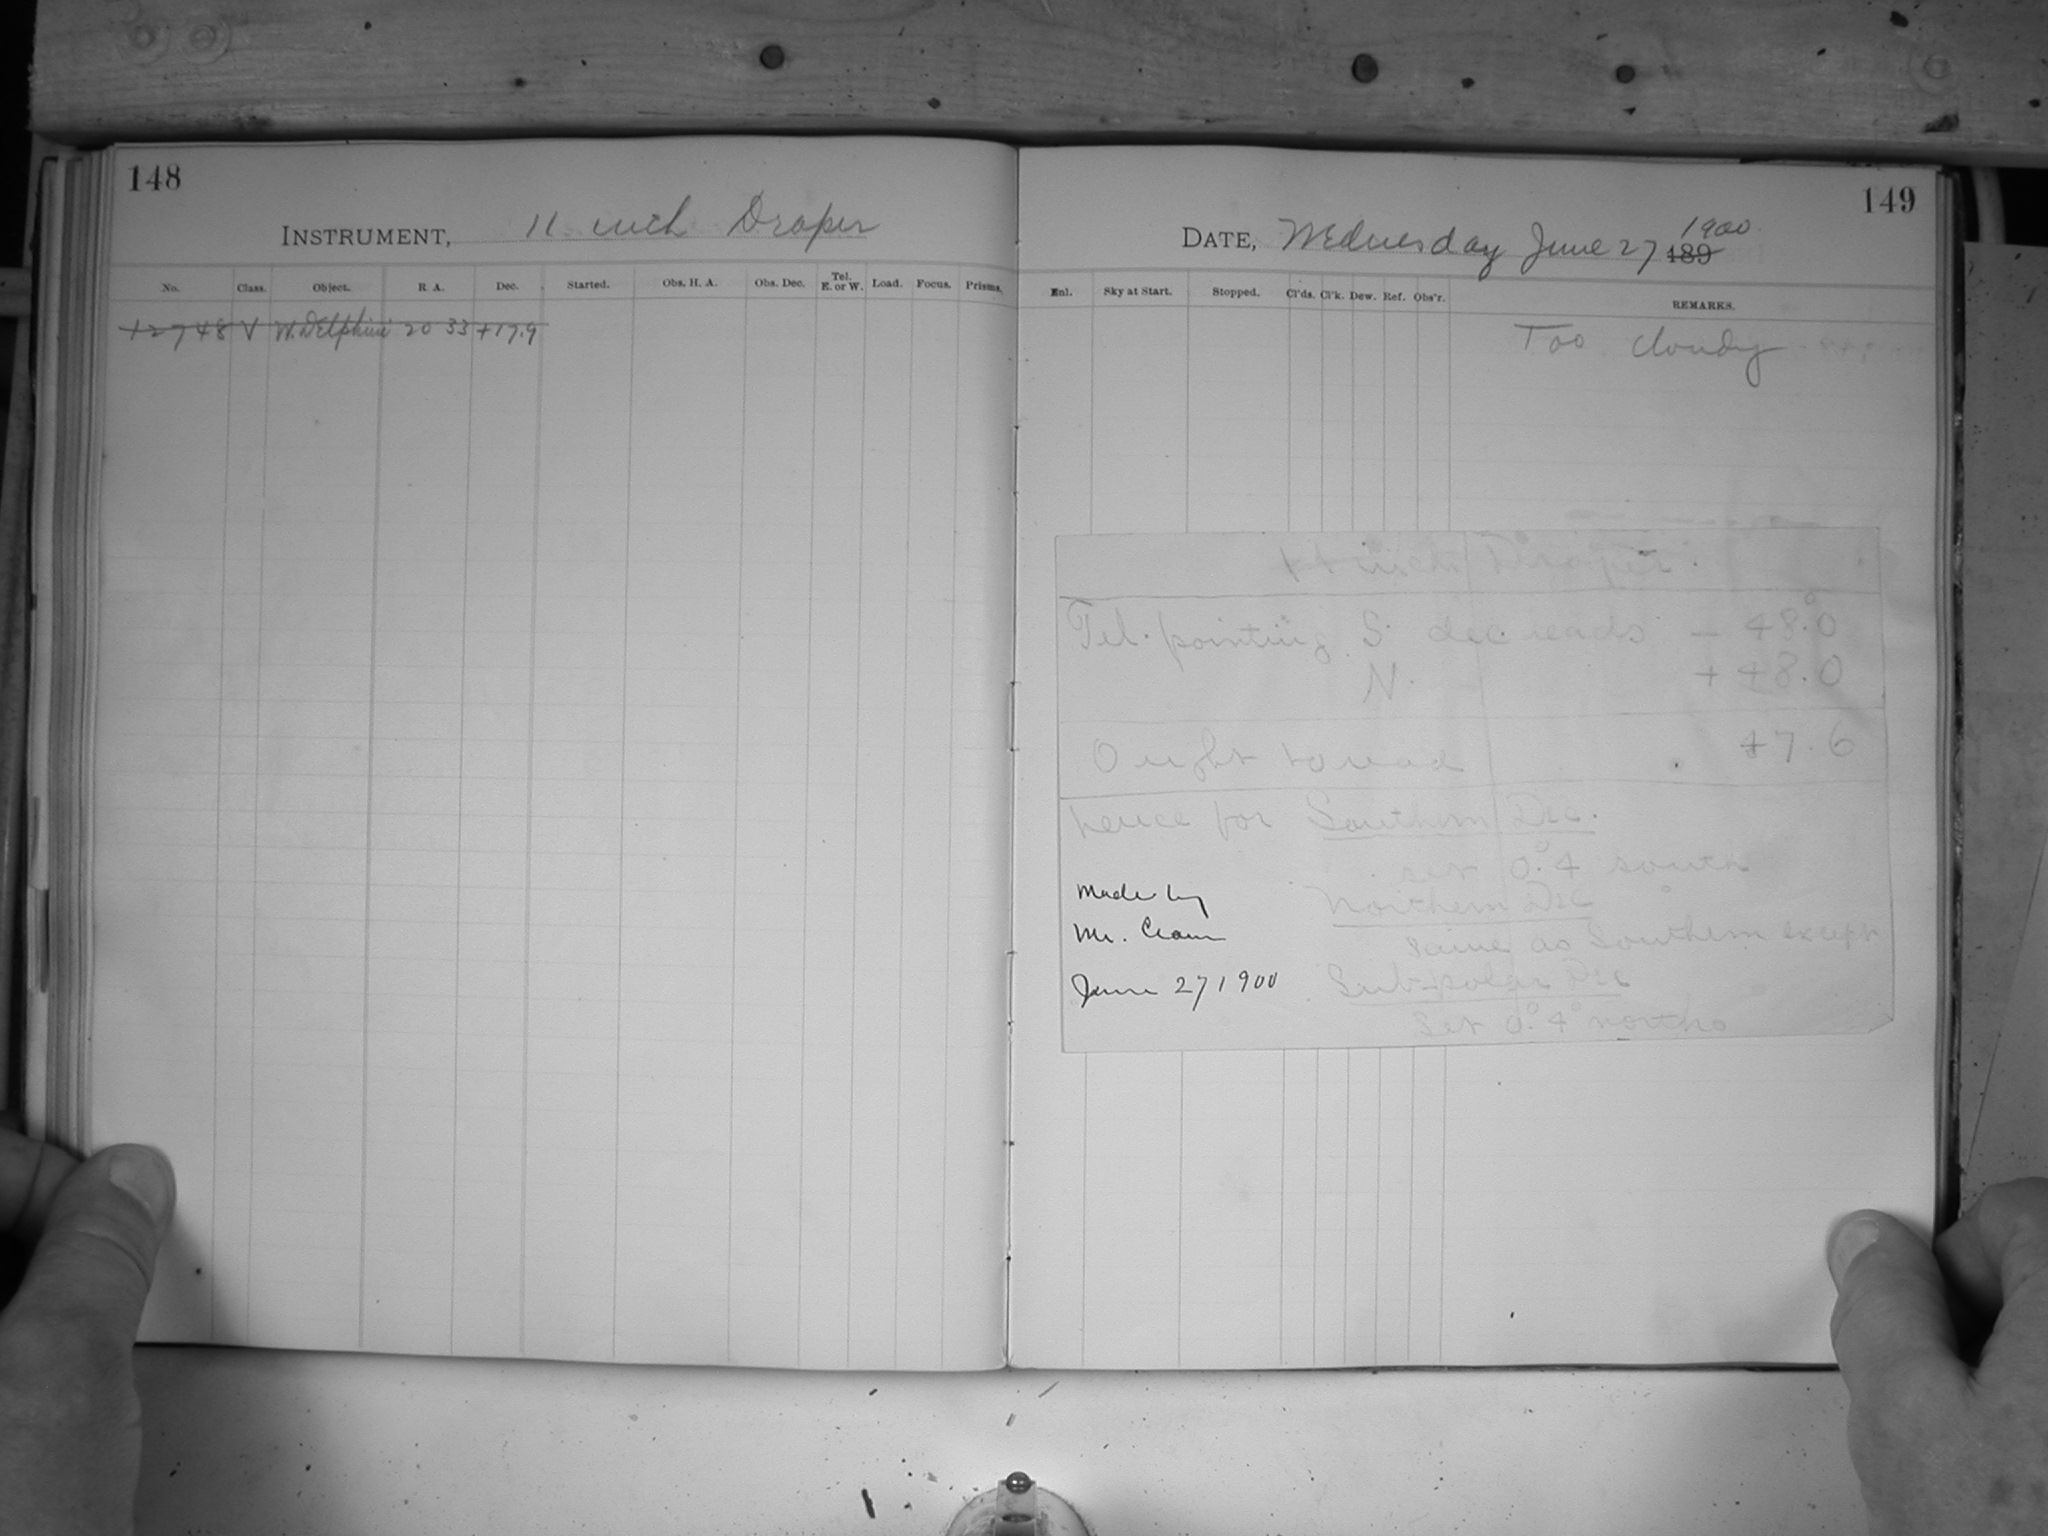 148
INSTRUMENT, 11 inch Draper
No. Class. Object. R A. Dec. Started. Obs. H. A. Obs. Dec. Tel. E. or W. Load. Focus. Prisms.
12748 V W. Delphini 20 33 +17.9
149
DATE, Wednesday June 27 1900 189
Enl. Sky at Start. Stopped. Cl'ds. Cl'k. Dew. Ref. Obs'r. REMARKS.
Too cloudy
11 inch Draper.
Tel. pointing S. dec. reads - 48°.0
N. + 48.0
Ought to read 47.6
hence for Southern Dec.
set 0°.4 south
Northern Dec
same as Southern except
Sub-polar Dec
Set 0°.4 north
Made by
Mr.
June 27 1900